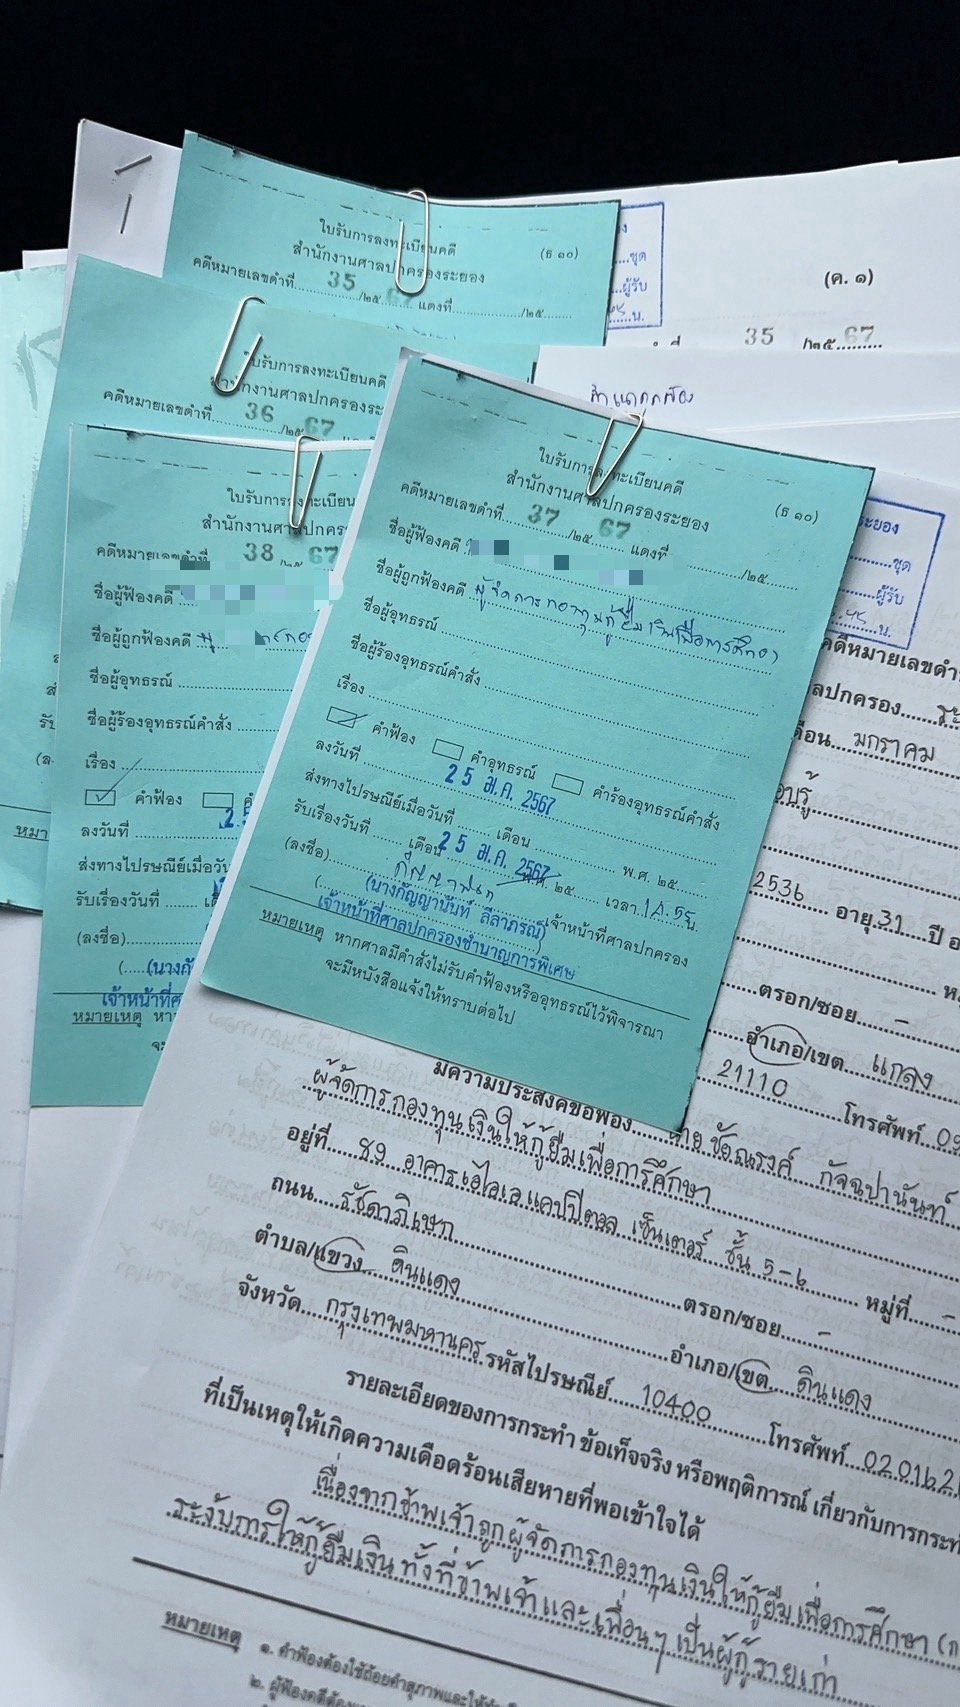 ใบรับการลงทะเบียนคดี
(ธ ๑๐)
สำนักงานศาลปกครองระยอง
คดีหมายเลขดำที่ 35 /๒๕ 67 แดงที่ /๒๕
ชุด
ผู้รับ
น.
(ค. ๑)
35 /๒๕ 67
ใบรับการลงทะเบียนคดี
สำนักงานศาลปกครองระ
คดีหมายเลขดำที่ 36 /๒๕ 67 แดง
ใบรับการลงทะเบียน
สำนักงานศาลปกคร
คดีหมายเลขดำที่ 38 /๒๕ 67
ชื่อผู้ฟ้องคดี
ชื่อผู้ถูกฟ้องคดี
ชื่อผู้อุทธรณ์
ชื่อผู้ร้องอุทธรณ์คำสั่ง
เรื่อง
คำฟ้อง
ลงวันที่ 2
ส่งทางไปรษณีย์เมื่อวัน
รับเรื่องวันที่
(ลงชื่อ)
(นางกั
เจ้าหน้าที่ศา
หมายเหตุ หา
จะ
ใบรับการลงทะเบียนคดี
(ธ ๑๐)
สำนักงานศาลปกครองระยอง
คดีหมายเลขดำที่ 37 /๒๕ 67 แดงที่ /๒๕
ชื่อผู้ฟ้องคดี
ชื่อผู้ถูกฟ้องคดี ผู้จัดการกองทุนกู้ยืมเงินเพื่อการศึกษา
ชื่อผู้อุทธรณ์
ชื่อผู้ร้องอุทธรณ์คำสั่ง
เรื่อง
คำฟ้อง คำอุทธรณ์ คำร้องอุทธรณ์คำสั่ง
ลงวันที่ 25 ม.ค. 2567
ส่งทางไปรษณีย์เมื่อวันที่ เดือน พ.ศ. ๒๕
รับเรื่องวันที่ เดือน 25 ม.ค. 2567 พ.ศ. ๒๕ เวลา น.
(ลงชื่อ) เจ้าหน้าที่ศาลปกครอง
(นางกัญญานันท์ ลีลาภรณ์)
เจ้าหน้าที่ศาลปกครองชำนาญการพิเศษ
หมายเหตุ หากศาลมีคำสั่งไม่รับคำฟ้องหรืออุทธรณ์ไว้พิจารณา
จะมีหนังสือแจ้งให้ทราบต่อไป
ระยอง
ชุด
ผู้รับ
น.
คดีหมายเลขดำ
ลปกครอง
เดือน มกราคม
2536 อายุ 31 ปี
ตรอก/ซอย -
อำเภอ/เขต แกลง
21110 โทรศัพท์
มีความประสงค์ขอฟ้อง นาย ชัยณรงค์ กัจฉปานันท์
ผู้จัดการกองทุนเงินให้กู้ยืมเพื่อการศึกษา
อยู่ที่ 89 อาคารเอไอเอแคปปิตอล เซ็นเตอร์ ชั้น 5-6 หมู่ที่ -
ถนน รัชดาภิเษก ตรอก/ซอย -
ตำบล/แขวง ดินแดง อำเภอ/เขต ดินแดง
จังหวัด กรุงเทพมหานคร รหัสไปรษณีย์ 10400 โทรศัพท์ 02 016 2
รายละเอียดของการกระทำ ข้อเท็จจริง หรือพฤติการณ์ เกี่ยวกับการกระทำ
ที่เป็นเหตุให้เกิดความเดือดร้อนเสียหายที่พอเข้าใจได้
เนื่องจากข้าพเจ้าถูกผู้จัดการกองทุนเงินให้กู้ยืมเพื่อการศึกษา (ก
ระงับการให้กู้ยืมเงิน ทั้งที่ข้าพเจ้าและเพื่อนๆ เป็นผู้กู้รายเก่า
หมายเหตุ ๑. คำฟ้องต้องใช้ถ้อยคำสุภาพและให้
๒. ผู้ฟ้องคดีต้อง